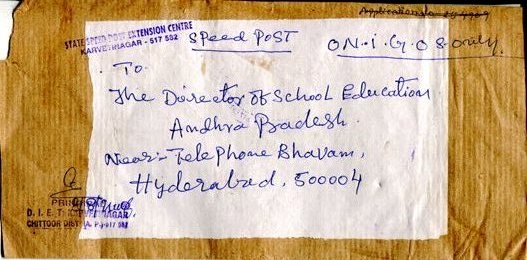 STATE SPEED POST EXTENSION CENTRE
KARVETINAGAR - 517 582
Speed Post
O.N.I.G.O.S. only.
To
The Director of School Education
Andhra Pradesh.
Near:- Telephone Bhavan,
Hyderabad, 500004
D. I. E. T.
CHITTOOR DIST. (A. P.)-517 582